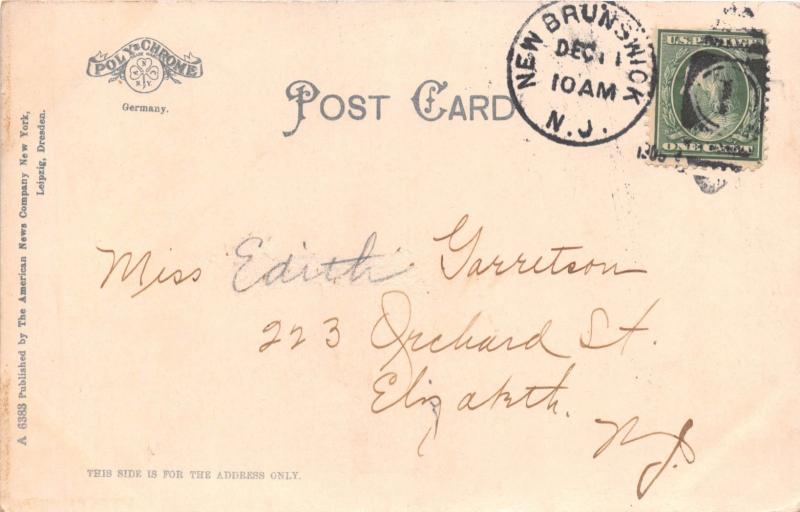 POLY-CHROME
Germany.
POST CARD
NEW BRUNSWICK
DEC 11
10 AM
N.J.
U.S. POSTAGE
ONE CENT
A 6383 Published by The American News Company New York,
Leipzig, Dresden.
Miss Edith Garretson
223 Orchard St.
Elizabeth.
N.J.
THIS SIDE IS FOR THE ADDRESS ONLY.